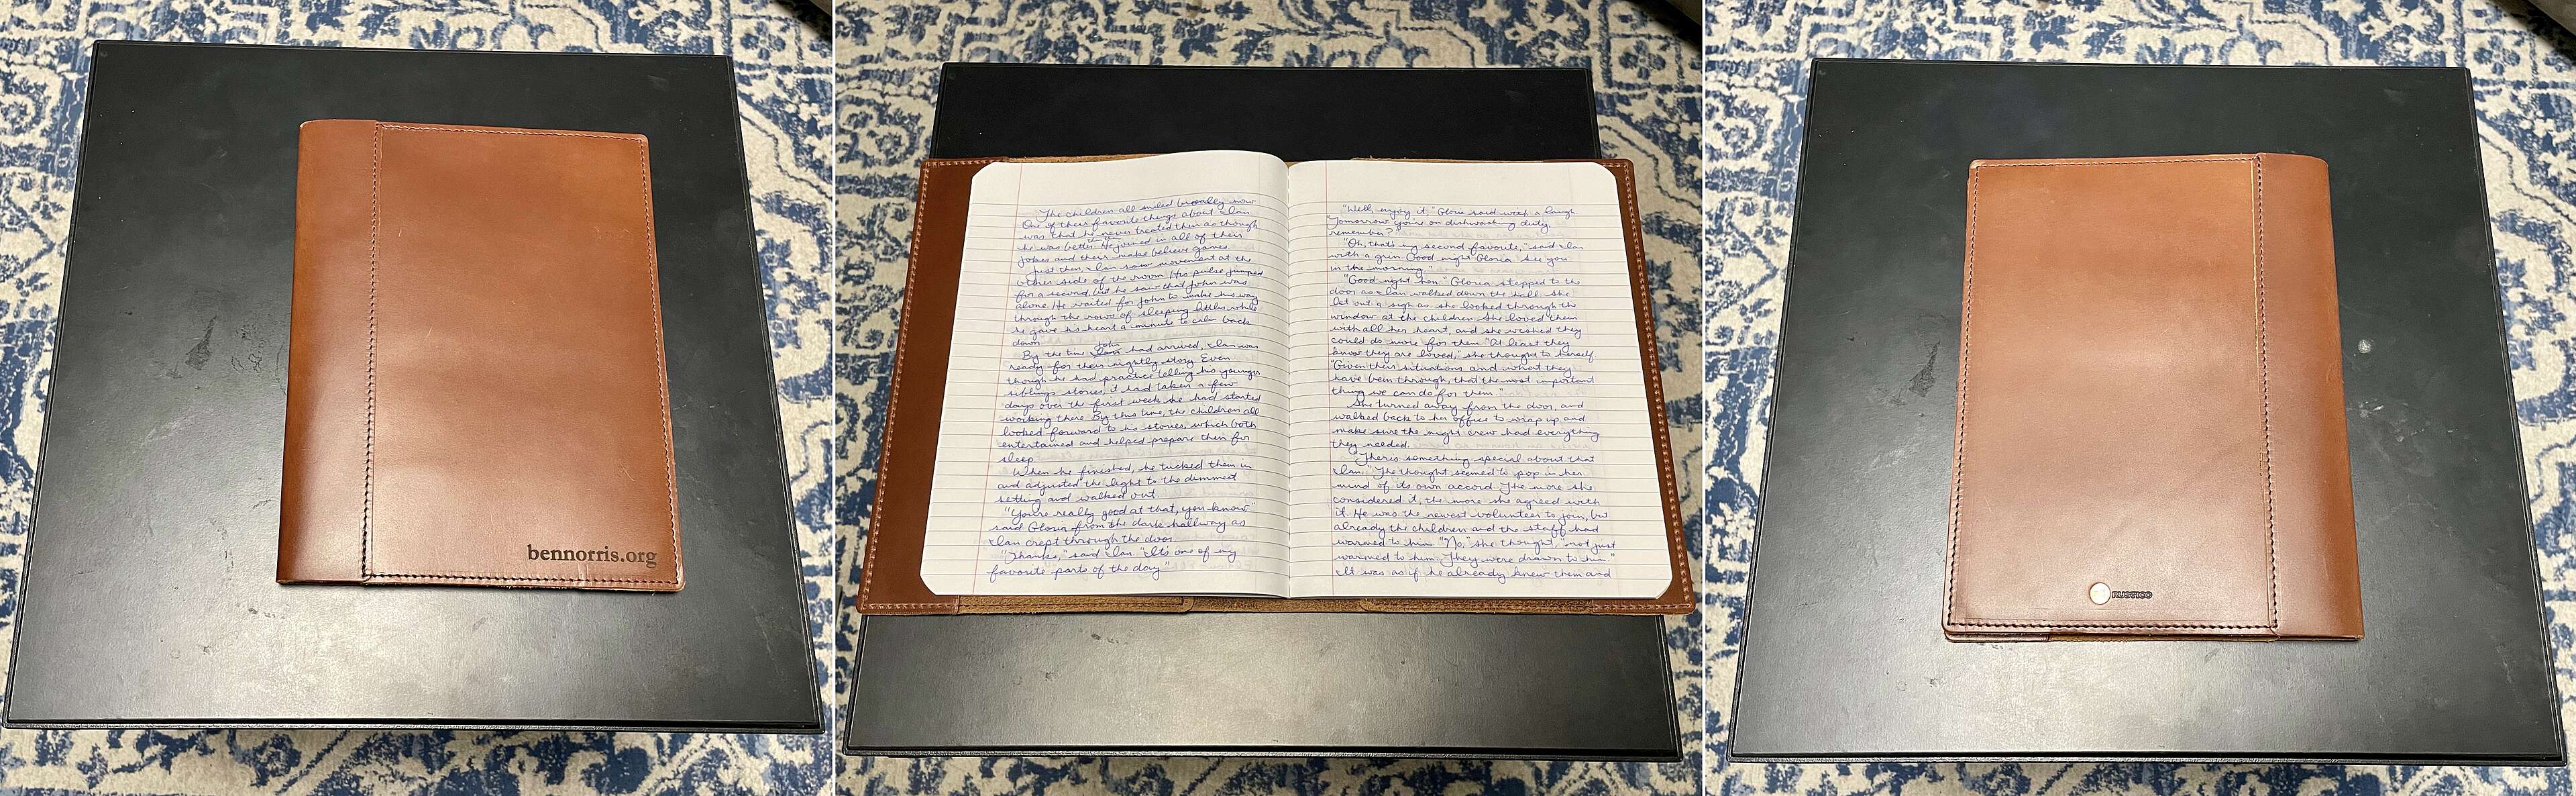 bennorris.org
The children all smiled broadly now
One of their favorite things about Ian
was that he never treated them as though
he was better. He joined in all of their
jokes and their make believe games
Just then, Ian saw movement at the
other side of the room His pulse jumped
for a second, but he saw that John was
alone. He waited for John to make his way
through the rows of sleeping littles while
he gave his heart a minute to calm back
down
John
By the time Ian had arrived, Ian was
ready for their nightly story. Even
though he had practice telling his younger
siblings stories, it had taken a few
days over the first week he had started
working there. By this time, the children all
looked forward to his stories, which both
entertained and helped prepare them for
sleep
When he finished, he tucked them in
and adjusted the light to the dimmest
setting and walked out
"You're really good at that, you know"
said Gloria from the dark hallway as
Ian crept through the door.
"Thanks," said Ian. "It's one of my
favorite parts of the day"
"Well, enjoy it," Gloria said with a laugh.
"Tomorrow you're on dishwashing duty,
remember?"
"Oh, that's my second favorite," said Ian
with a grin Good night Gloria See you
in the morning."
"Good night hon." Gloria stepped to the
door as Ian walked down the hall. She
let out a sigh as she looked through the
window at the children. She loved them
with all her heart, and she wished they
could do more for them. "At least they
know they are loved," she thought to herself.
"Given their situations and what they
have been through, that the most important
thing we can do for them."
She turned away from the door, and
walked back to her office to wrap up and
make sure the night crew had everything
they needed.
"There's something special about that
Ian." The thought seemed to pop in her
mind of its own accord The more she
considered it, the more she agreed with
it. He was the newest volunteer to join, but
already the children and the staff had
warmed to him "No," she thought, "not just
warmed to him. They were drawn to him."
It was as if he already knew them and
RUSTICO